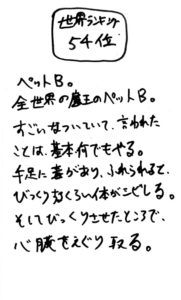 世界ランキング
54位
ペットB。
全世界の魔王のペットB。
すごいなついていて、言われた
ことは、基本何でもやる。
手足に毒があり、ふれられると、
びっくりするくらい体がこどしる。
そしてびっくりさせたところで、
心臓をえぐり取る。